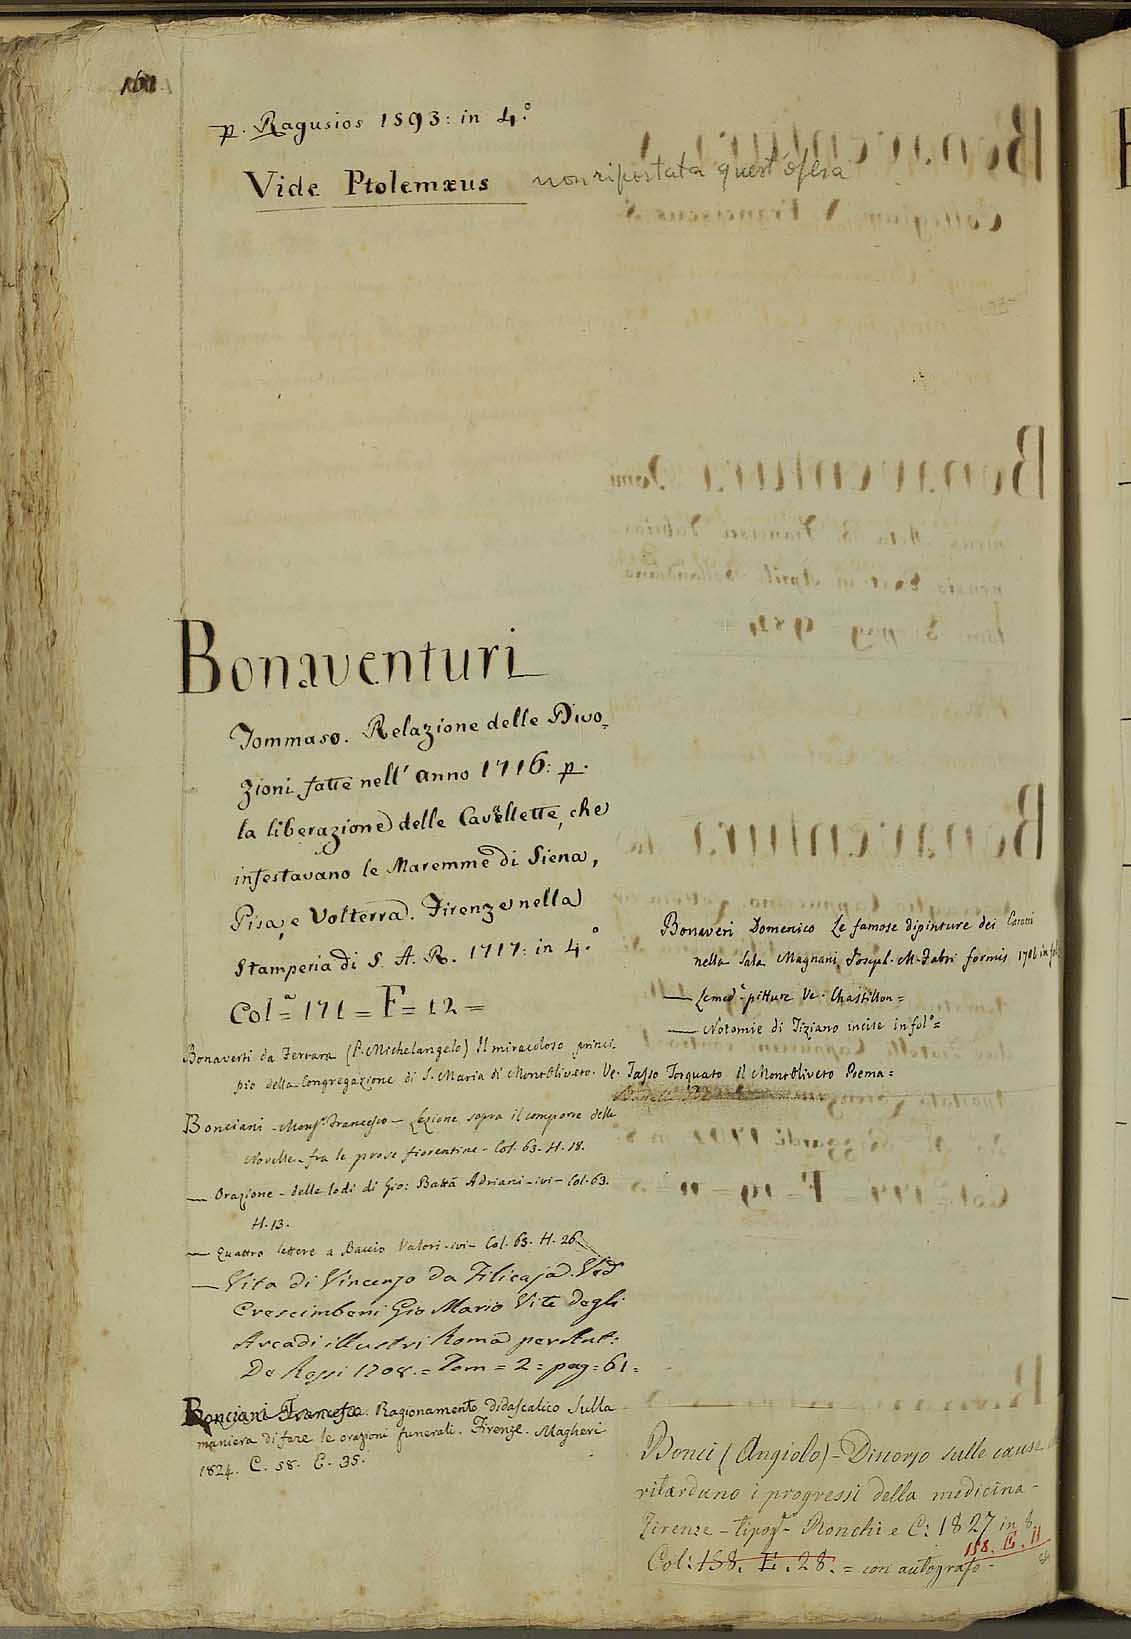 160
p. Ragusios 1593: in 4.º
Vide Ptolemæus non riportata quest'opera
Bonaventuri
Tommaso. Relazione delle Divo-
zioni fatte nell' anno 1716: p.
la liberazione delle Cavallette, che
infestavano le Maremme di Siena,
Pisa, e Volterra. Firenze nella
Stamperia di S. A. R. 1717: in 4.º
Col.ª = 171 = F = 12 =
Bonaverti da Ferrara (P. Michelangelo) Il miracoloso princi-
pio della Congregazione di S. Maria di MontOliveto. Ve. Tasso Torquato il MontOliveto Poema =
Bonciani - Monsr. Francesco - Lezione sopra il comporre delle
Novelle - fra le prose fiorentine - Col. 63. H. 18.
— Orazione - delle lodi di Gio: Batta Adriani - ivi - Col. 63.
H. 13.
— Quattro lettere a Baccio Valori - ivi - Col. 63. H. 26
— Vita di Vincenzo da Filicaja. Ved
Crescimbeni Gio Mario Vite degli
Arcadi illustri Roma per Ant:
De Rossi 1708. = Tom = 2 = pag = 61 =
Bonciani Francesco. Ragionamento didascalico sulla
maniera di fare le orazioni funerali. Firenze. Magheri
1824. C. 58. E. 35.
Bonaveri Domenico Le famose dipinture dei Caracci
nella Sala Magnani, Joseph. M. Fabri formis 17 in fol
— pitture Ve. Chastillon =
— Notomie di Tiziano incise in folº =
Bonci (Angiolo) - Discorso sulle cause
ritardano i progressi della medicina -
Firenze - tipogr. Ronchi e C: 1827 in 8.
158. E. 11
Col: 158. E. 28. = con autografo -